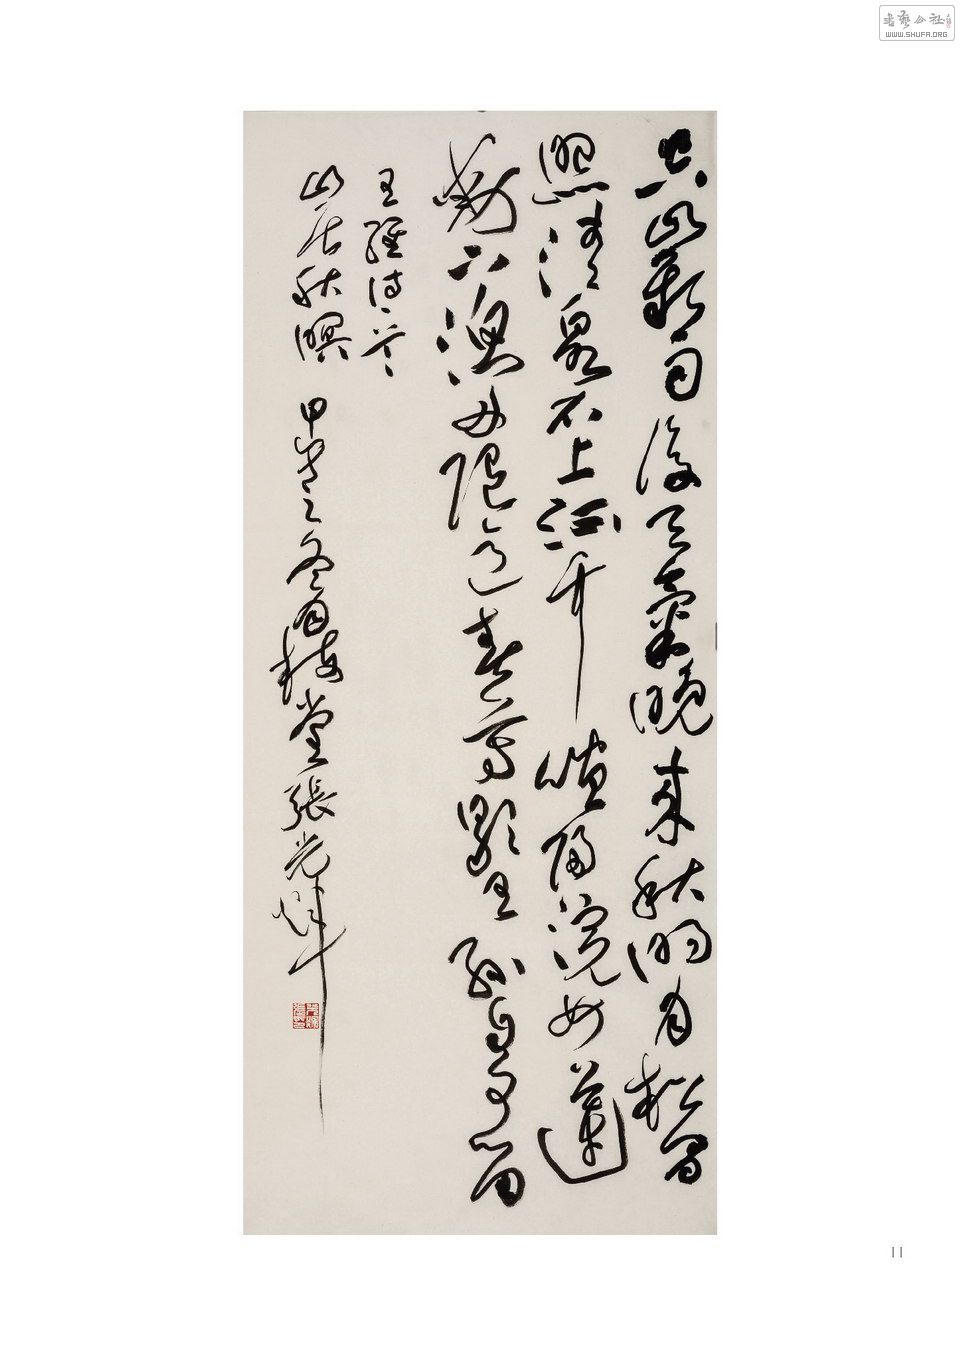 書藝公社
WWW.SHUFA.ORG
空山新雨後天氣晚來秋明月松間
照清泉石上流竹喧歸浣女蓮
動下漁舟隨意春芳歇王孫自可留
王維詩一首
山居秋暝 甲之冬梅堂張光
11